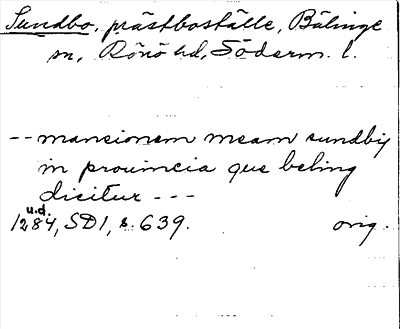 Sundbo, prästboställe, Bälinge
sn, Rönö hd, Söderm. l.
-- mansionem meam sundby
in prouincia que beling
dicitur ---
u.d.
1284, SD 1, s. 639. orig.